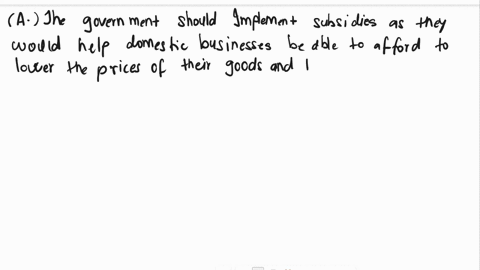 (A.) The government should Implement subsidies as they
would help domestic businesses be able to afford to
lower the prices of their goods and l